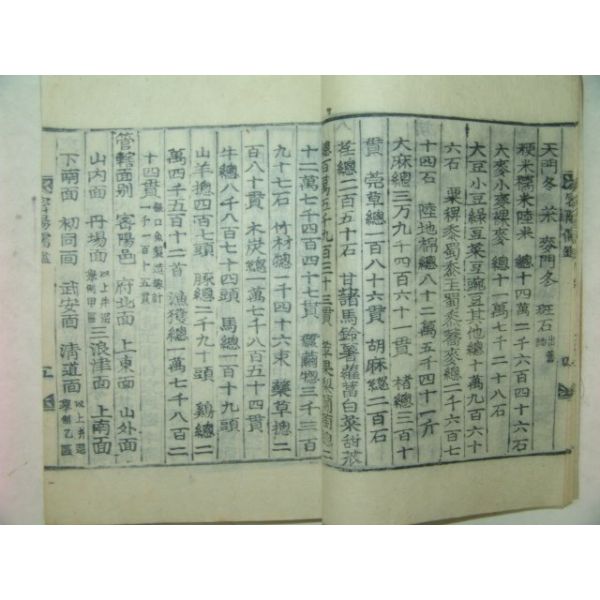 天門冬 茶 麥門冬 斑石
粳米糯米陸米 總十四萬二千六百四十六石
大麥小麥裸麥 總十一萬七千二十八石
大豆小豆綠豆菜豆豌豆其他總十萬九百六十
六石 粟稗黍蜀黍玉蜀黍蕎麥總二千六百七
十四石 陸地棉總八十二萬五千四十一斤
大麻總三万九千四百六十一貫 楮總三百十
貫 莞草總一百八十六貫 胡麻總二百石
荏總二百五十石 甘藷馬鈴薯蘿蔔白菜
總百萬五千九百三十三貫 總二
十二萬七千四百四十七貫 繭總三千三百
九十七石 竹材總二千四十六束 藥草總二
百八十貫 木炭總一萬七千八百五十四貫
牛總八千八百七十四頭 馬總一百十九頭
山羊總四百七頭 豚總二千九十頭 鷄總二
萬四千五百十二首 漁獲總一萬七千八百二
十四貫
一千一百十五貫
管轄面别 密陽邑 府北面 上東面 山外面
山内面 丹場面 三浪津面 上南面
下南面 初同面 武安面 淸道面